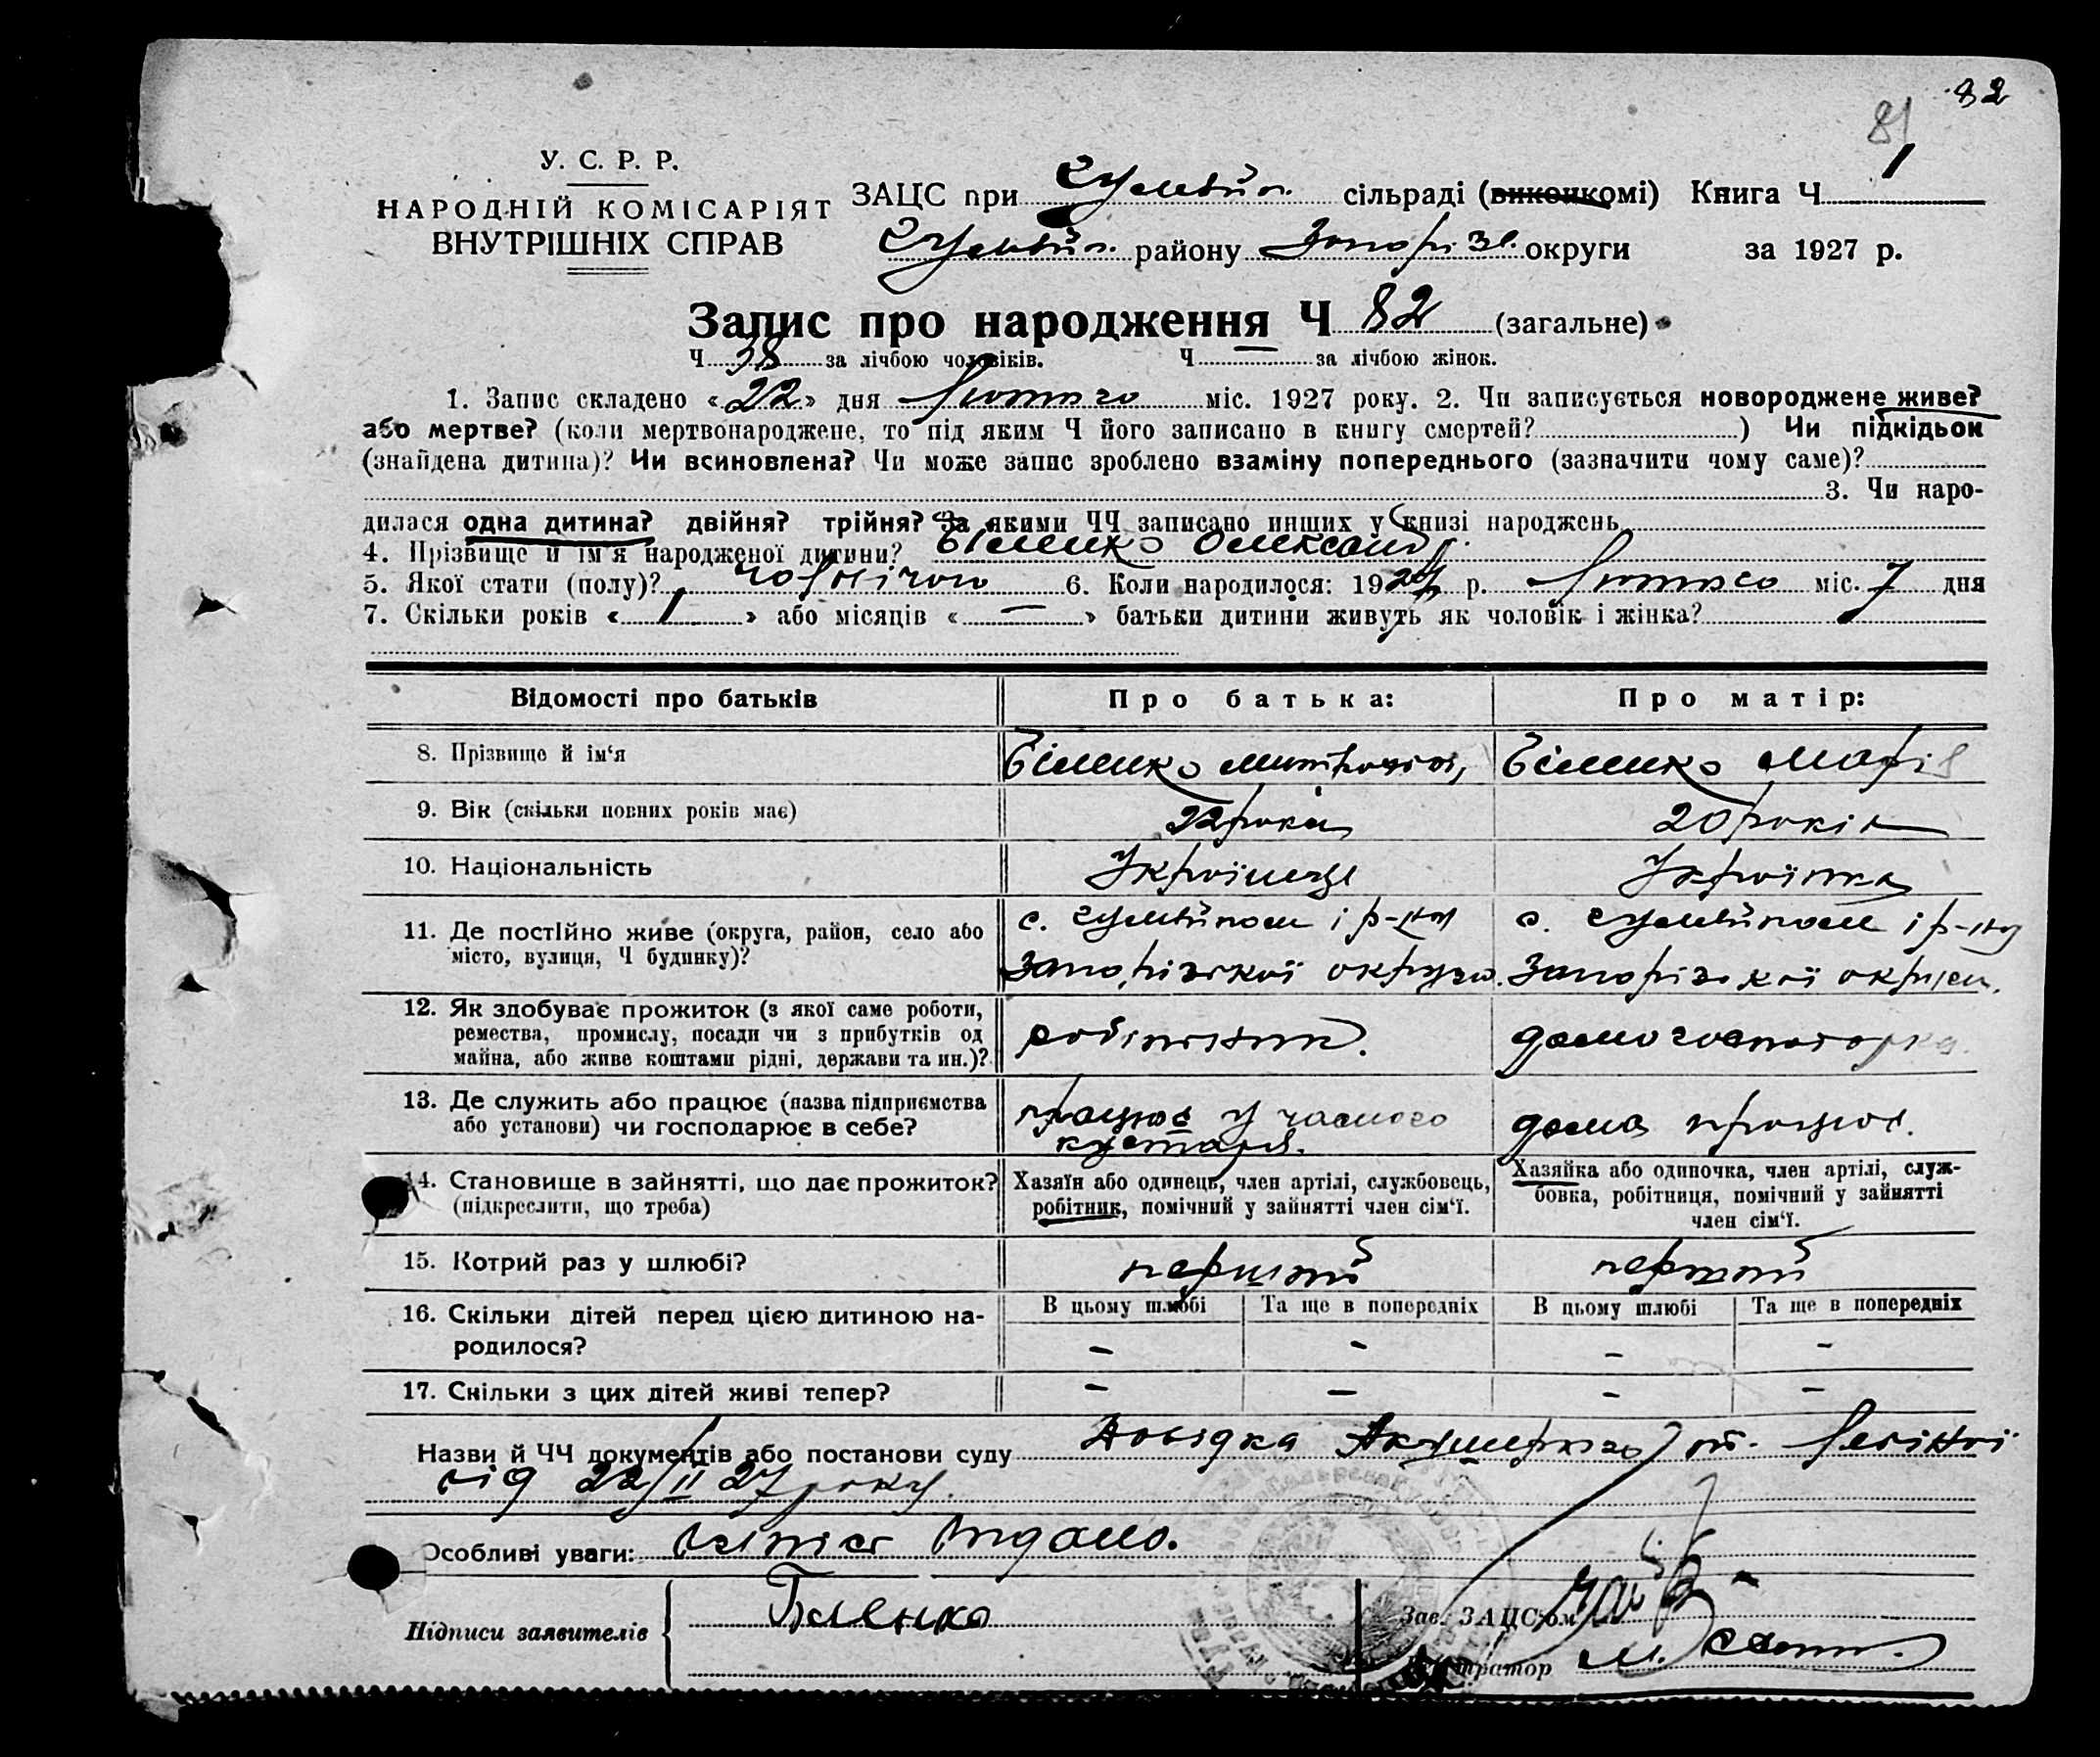 82
81
У. С. Р. Р.
НАРОДНІЙ КОМІСАРІЯТ
ВНУТРІШНІХ СПРАВ
ЗАЦС при Гуляйп. сільраді (виконкомі) Книга Ч 1
Гуляйп. району Запоріз. округи за 1927 р.
Запис про народження Ч 82 (загальне)
Ч 38 за лічбою чоловіків. Ч за лічбою жінок.
1. Запис складено «22» дня Лютого міс. 1927 року. 2. Чи записується новороджене живе?
або мертве? (коли мертвонароджене, то під яким Ч його записано в книгу смертей? ) Чи підкідьок
(знайдена дитина)? Чи всиновлена? Чи може запис зроблено взаміну попереднього (зазначити чому саме)?
3. Чи наро-
дилася одна дитина? двійня? трійня? За якими ЧЧ записано инших у книзі народжень
4. Прізвище й ім'я народженої дитини? Біленко Олександр.
5. Якої стати (полу)? чоловічого 6. Коли народилося: 1927 р. Лютого міс. 7 дня
7. Скільки років « 1 » або місяців « — » батьки дитини живуть як чоловік і жінка?
Відомості про батьків Про батька: Про матір:
8. Прізвище й ім'я Біленко Біленко Марія
9. Вік (скільки повних років має) 22 роки 20 років
10. Національність Українець Українка
11. Де постійно живе (округа, район, село або с. Гуляйполе і р-ну с. Гуляйполе і р-ну
місто, вулиця, Ч будинку)? Запорізької округи. Запорізької округи.
12. Як здобуває прожиток (з якої саме роботи,
ремества, промислу, посади чи з прибутків од робітник. домогосподарка.
майна, або живе коштами рідні, держави та ин.)?
13. Де служить або працює (назва підприємства працює у часного дома працює.
або установи) чи господарює в себе? кустаря.
14. Становище в зайнятті, що дає прожиток? Хазяїн або одинець, член артілі, службовець, Хазяйка або одиночка, член артілі, служ-
(підкреслити, що треба) робітник, помічний у зайнятті член сім'ї. бовка, робітниця, помічний у зайнятті
член сім'ї.
15. Котрий раз у шлюбі? перший перший
16. Скільки дітей перед цією дитиною на- В цьому шлюбі Та ще в попередніх В цьому шлюбі Та ще в попередніх
родилося? – – – –
17. Скільки з цих дітей живі тепер? – – – –
Назви й ЧЧ документів або постанови суду Довідка Акушерки
від 22/II 27 року.
Особливі уваги: Витяг видано.
Підписи заявителів Біленко Зав. ЗАЦС'ом
М.